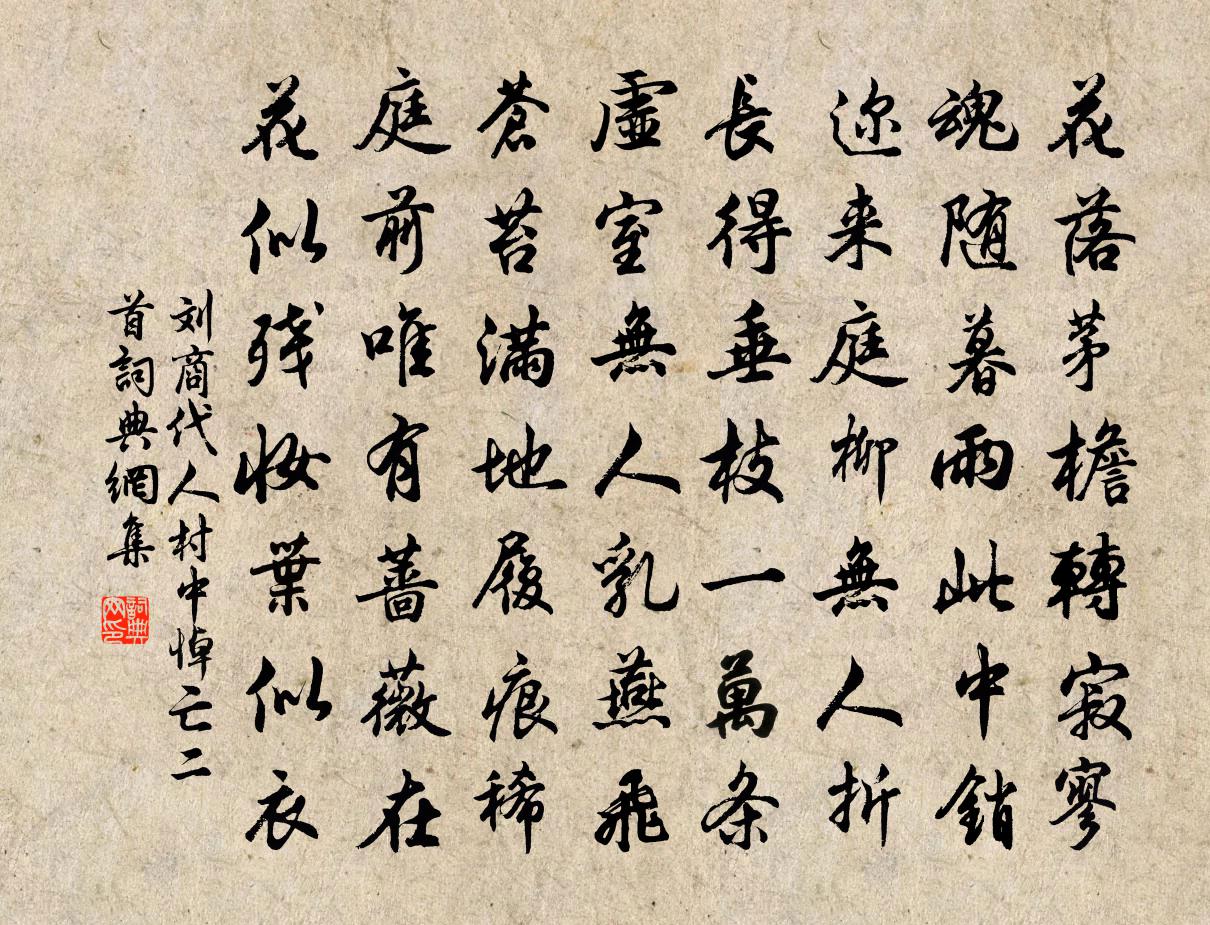 花落茅檐轉寂寥
魂随暮雨此中銷
迩来庭柳無人折
長得垂枝一萬条
虛室無人乳燕飛
蒼苔滿地履痕稀
庭前唯有薔薇在
花似残妆葉似衣
刘商代人村中悼亡二
首詞典網集
詞典网印